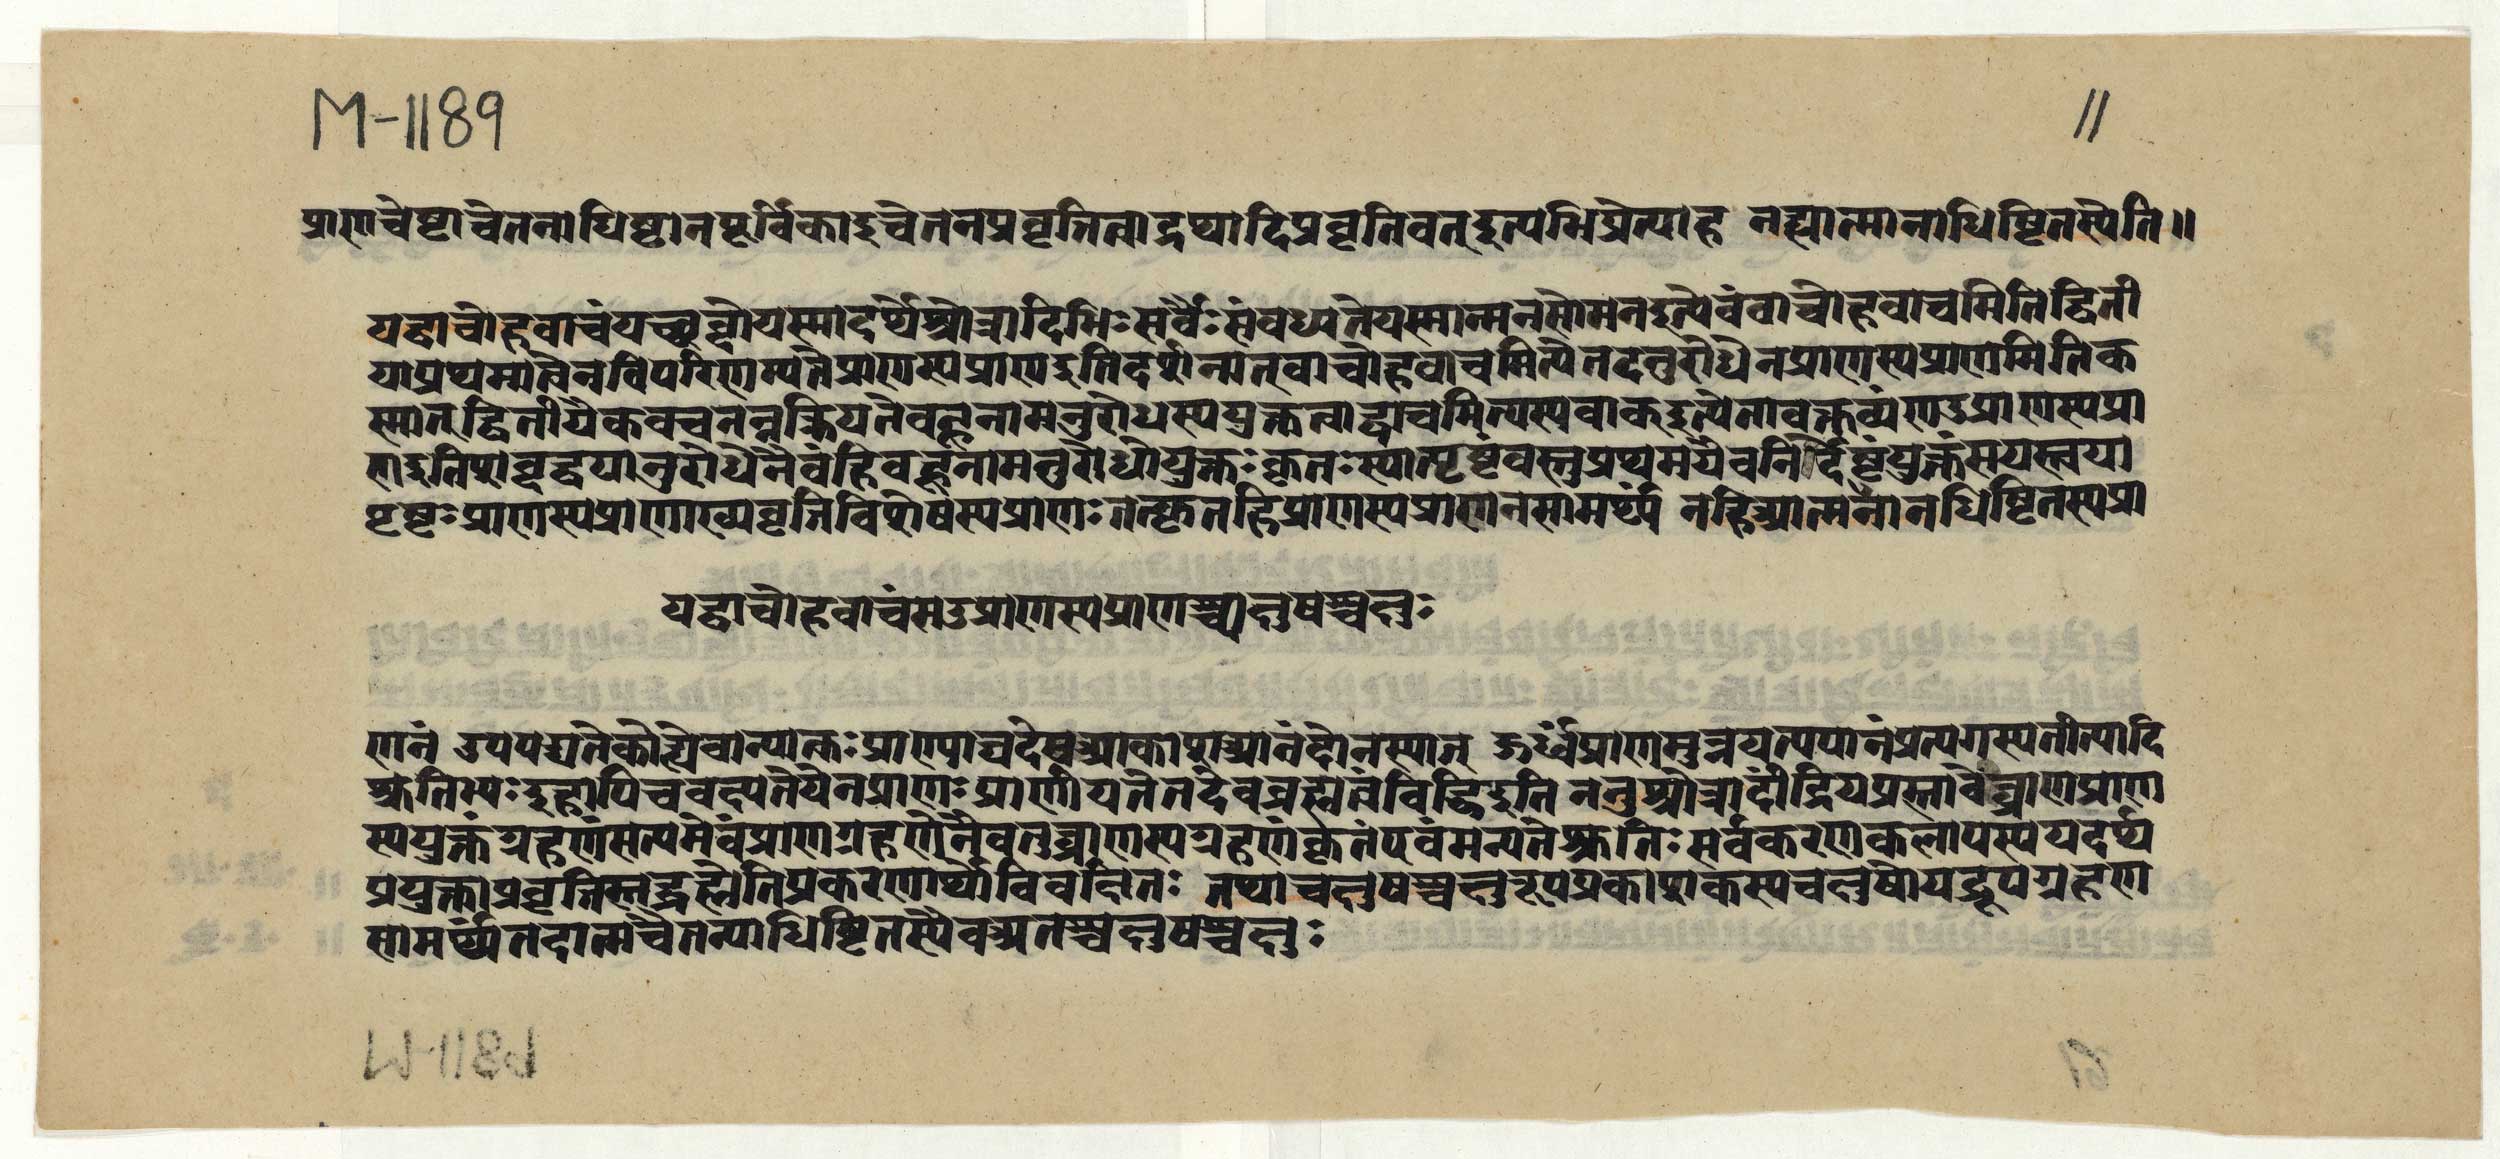 M-1189
11
प्राणचेष्टाचेतनाधिष्ठानपूर्विकाऽचेतनप्रवृत्तित्वाद्रथादिप्रवृत्तिवत्इत्यभिप्रेत्याह नह्यात्मानाधिष्ठितस्येति॥
यद्वाचोहवाचंयच्छब्दोयस्मादर्थेश्रोत्रादिभिःसर्वैःसंबध्यतेयस्मान्मनसोमनइत्येवंवाचोहवाचमितिद्विती
याप्रथमात्वेनविपरिणम्यतेप्राणस्यप्राणइतिदर्शनात्वाचोहवाचमित्येतदनुरोधेनप्राणस्यप्राणमितिक
स्मात्द्वितीयैकवचनन्नक्रियतेवहूनामनुरोधस्ययुक्तत्वाद्वाचमित्यस्यवाक्इत्येतावक्तव्यंणउप्राणस्यप्रा
णइतिशब्दद्वयानुरोधेनैवंहिवहूनामनुरोधोयुक्तःकृतःस्यात्पृष्टंवस्तुप्रथमयैवनिर्देष्टुंयुक्तंसयस्त्वया
पृष्टःप्राणस्यप्राणाख्यवृत्तिविशेषस्यप्राणःतत्कृतंहिप्राणस्यप्राणनसामर्थ्यं नहिआत्मनानधिष्ठितस्यप्रा
यद्वाचोहवाचंसउप्राणस्यप्राणश्चक्षुषश्चक्षुः
णनं उपपद्यतेकोह्येवान्यात्कःप्राण्याद्यदेषआकाशआनंदोनस्यात् ऊर्ध्वंप्राणमुन्नयत्यपानंप्रत्यगस्यतीत्यादि
श्रुतिभ्यःइहापिचवक्ष्यतेयेनप्राणःप्राणीयतेतदेवब्रह्मत्वंविद्धिइति ननुश्रोत्रादींद्रियप्रस्तावेघ्राणप्राण
स्ययुक्तंग्रहणंसत्यमेवंप्राणग्रहणेनैवतुघ्राणस्यग्रहणंकृतंएवंमन्यतेश्रुतिःसर्वकरणकलापस्ययदर्थ
प्रयुक्ताप्रवृत्तिस्तद्ब्रह्मेतिप्रकरणार्थोविवक्षितः तथाचक्षुषश्चक्षुरूपप्रकाशकस्यचक्षुषोयद्रूपग्रहण
सामर्थ्यंतदात्मचैतन्याधिष्ठितस्यैवअतश्चक्षुषश्चक्षुः